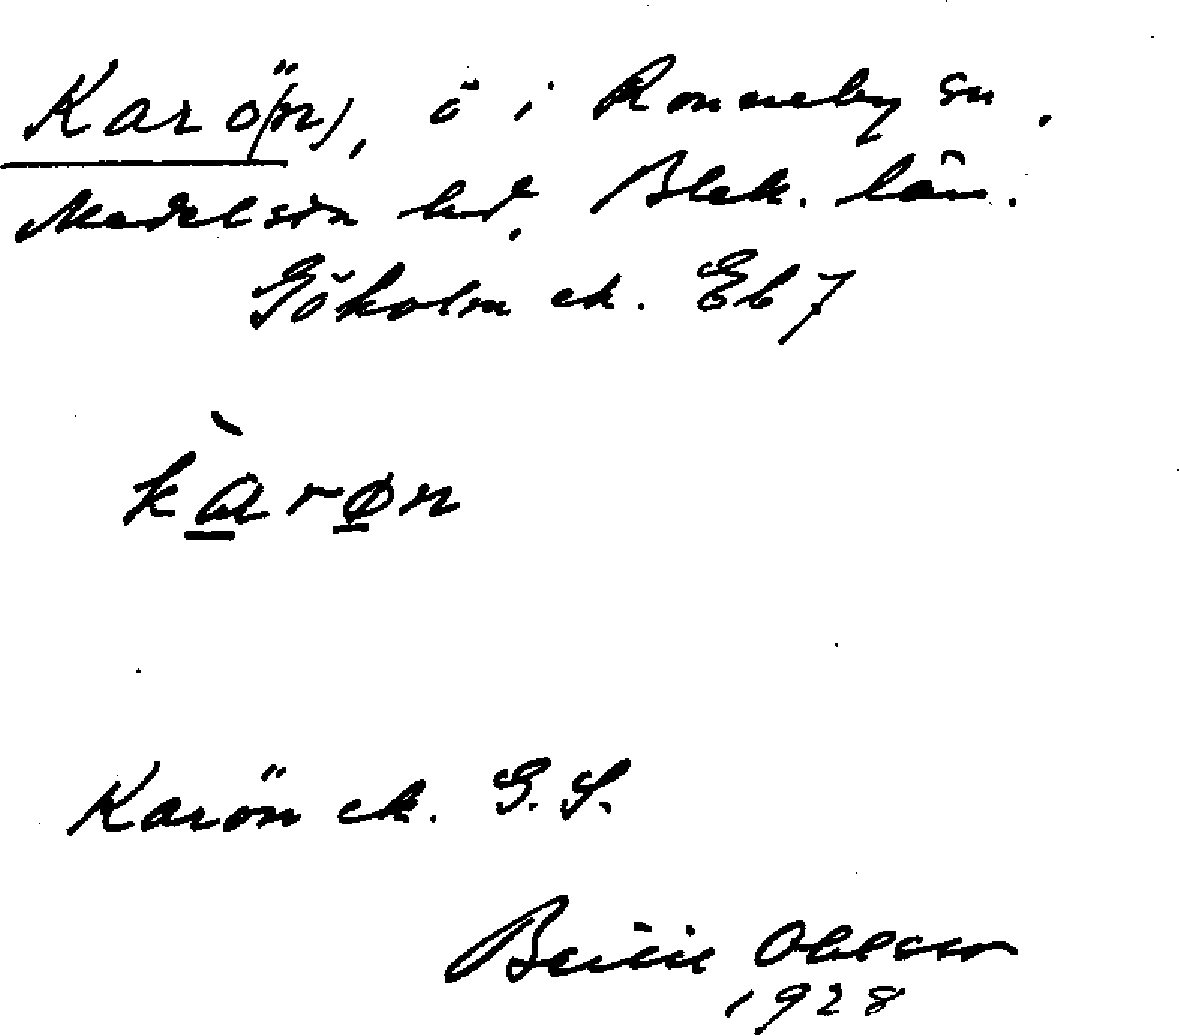 Karö(n), ö i Ronneby sn,
Medelsta hd, Blek. län.
Göholm ek. Eb 7
kàrøn
Karön ek. G. S.
Bertil Ohlsson
1928